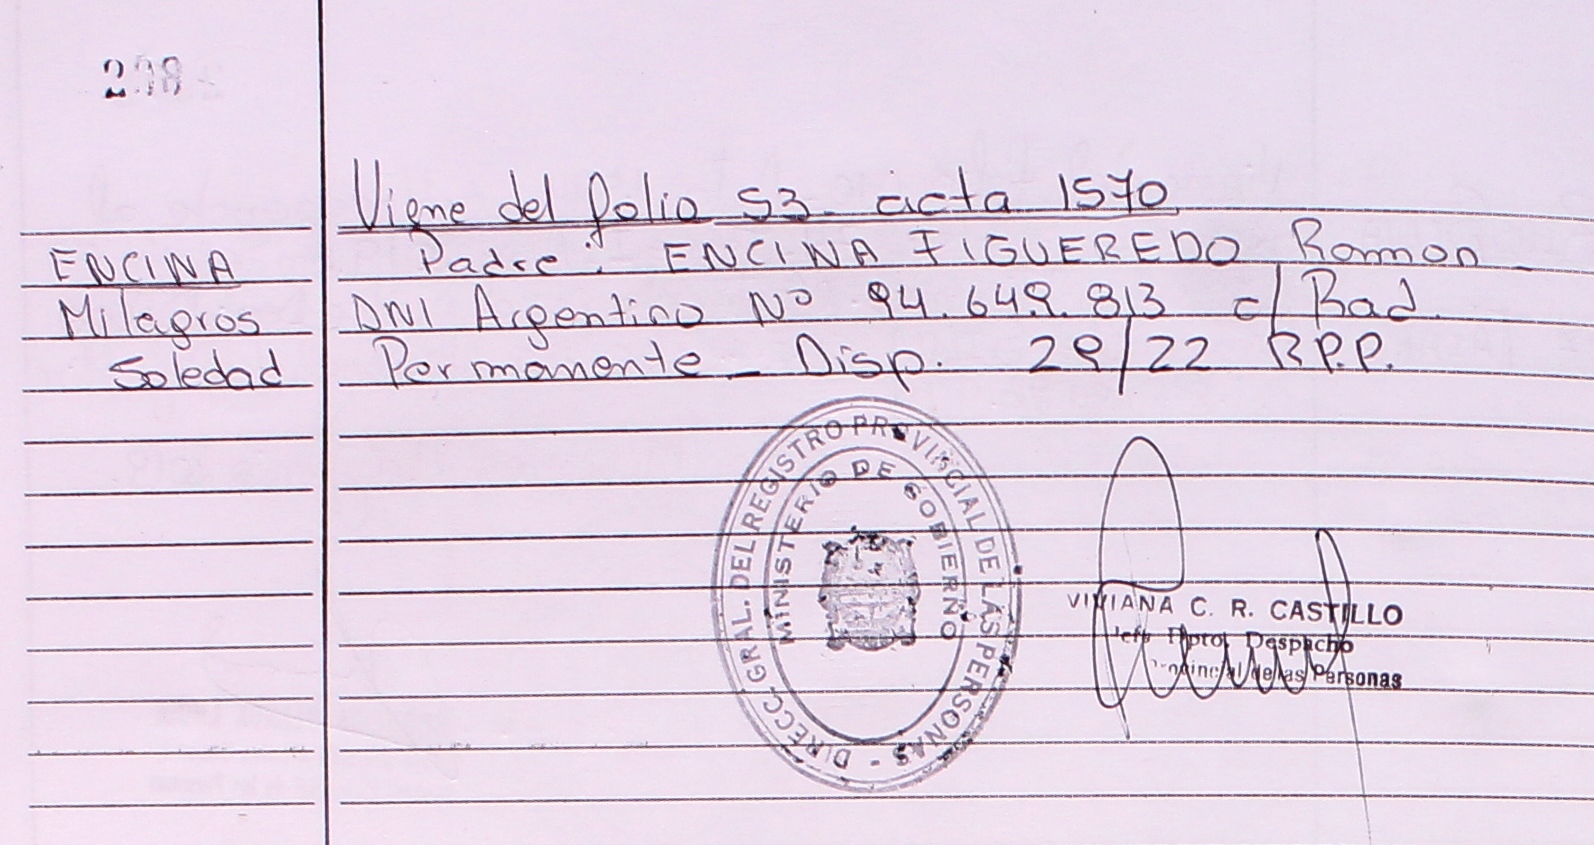 Viene del folio 53 acta 1570
ENCINA
Milagros
Soledad
Padre: ENCINA FIGUEREDO Ramon
DNI Argentino Nº 94.649.813 c/ Rad.
Permanente - Disp. 29/22 R.P.P.
DIRECC. GRAL. DEL REGISTRO PROVINCIAL DE LAS PERSONAS -
MINISTERIO DE GOBIERNO
VIVIANA C. R. CASTILLO
Jefe Dpto. Despacho
de las Personas